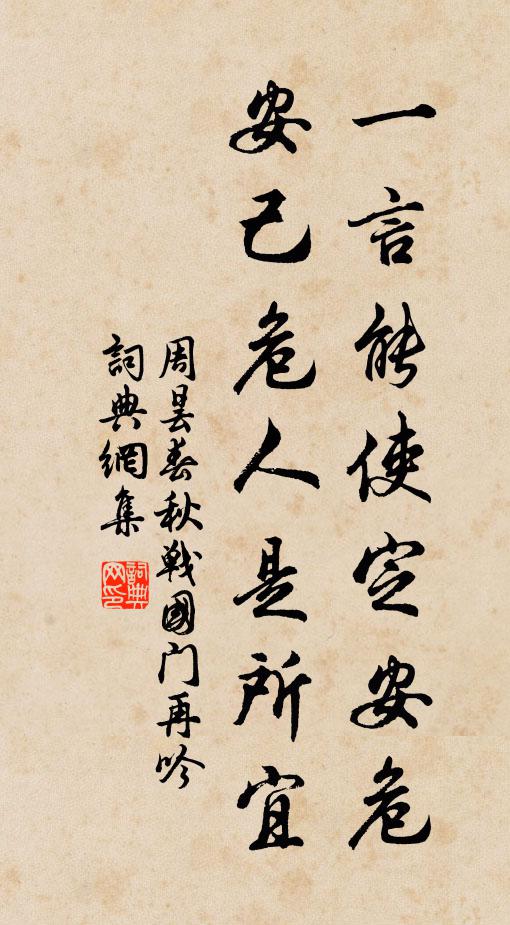 一言能使定安危
安己危人是所宜
周昙春秋戦國门再吟
詞典網集
詞典网印